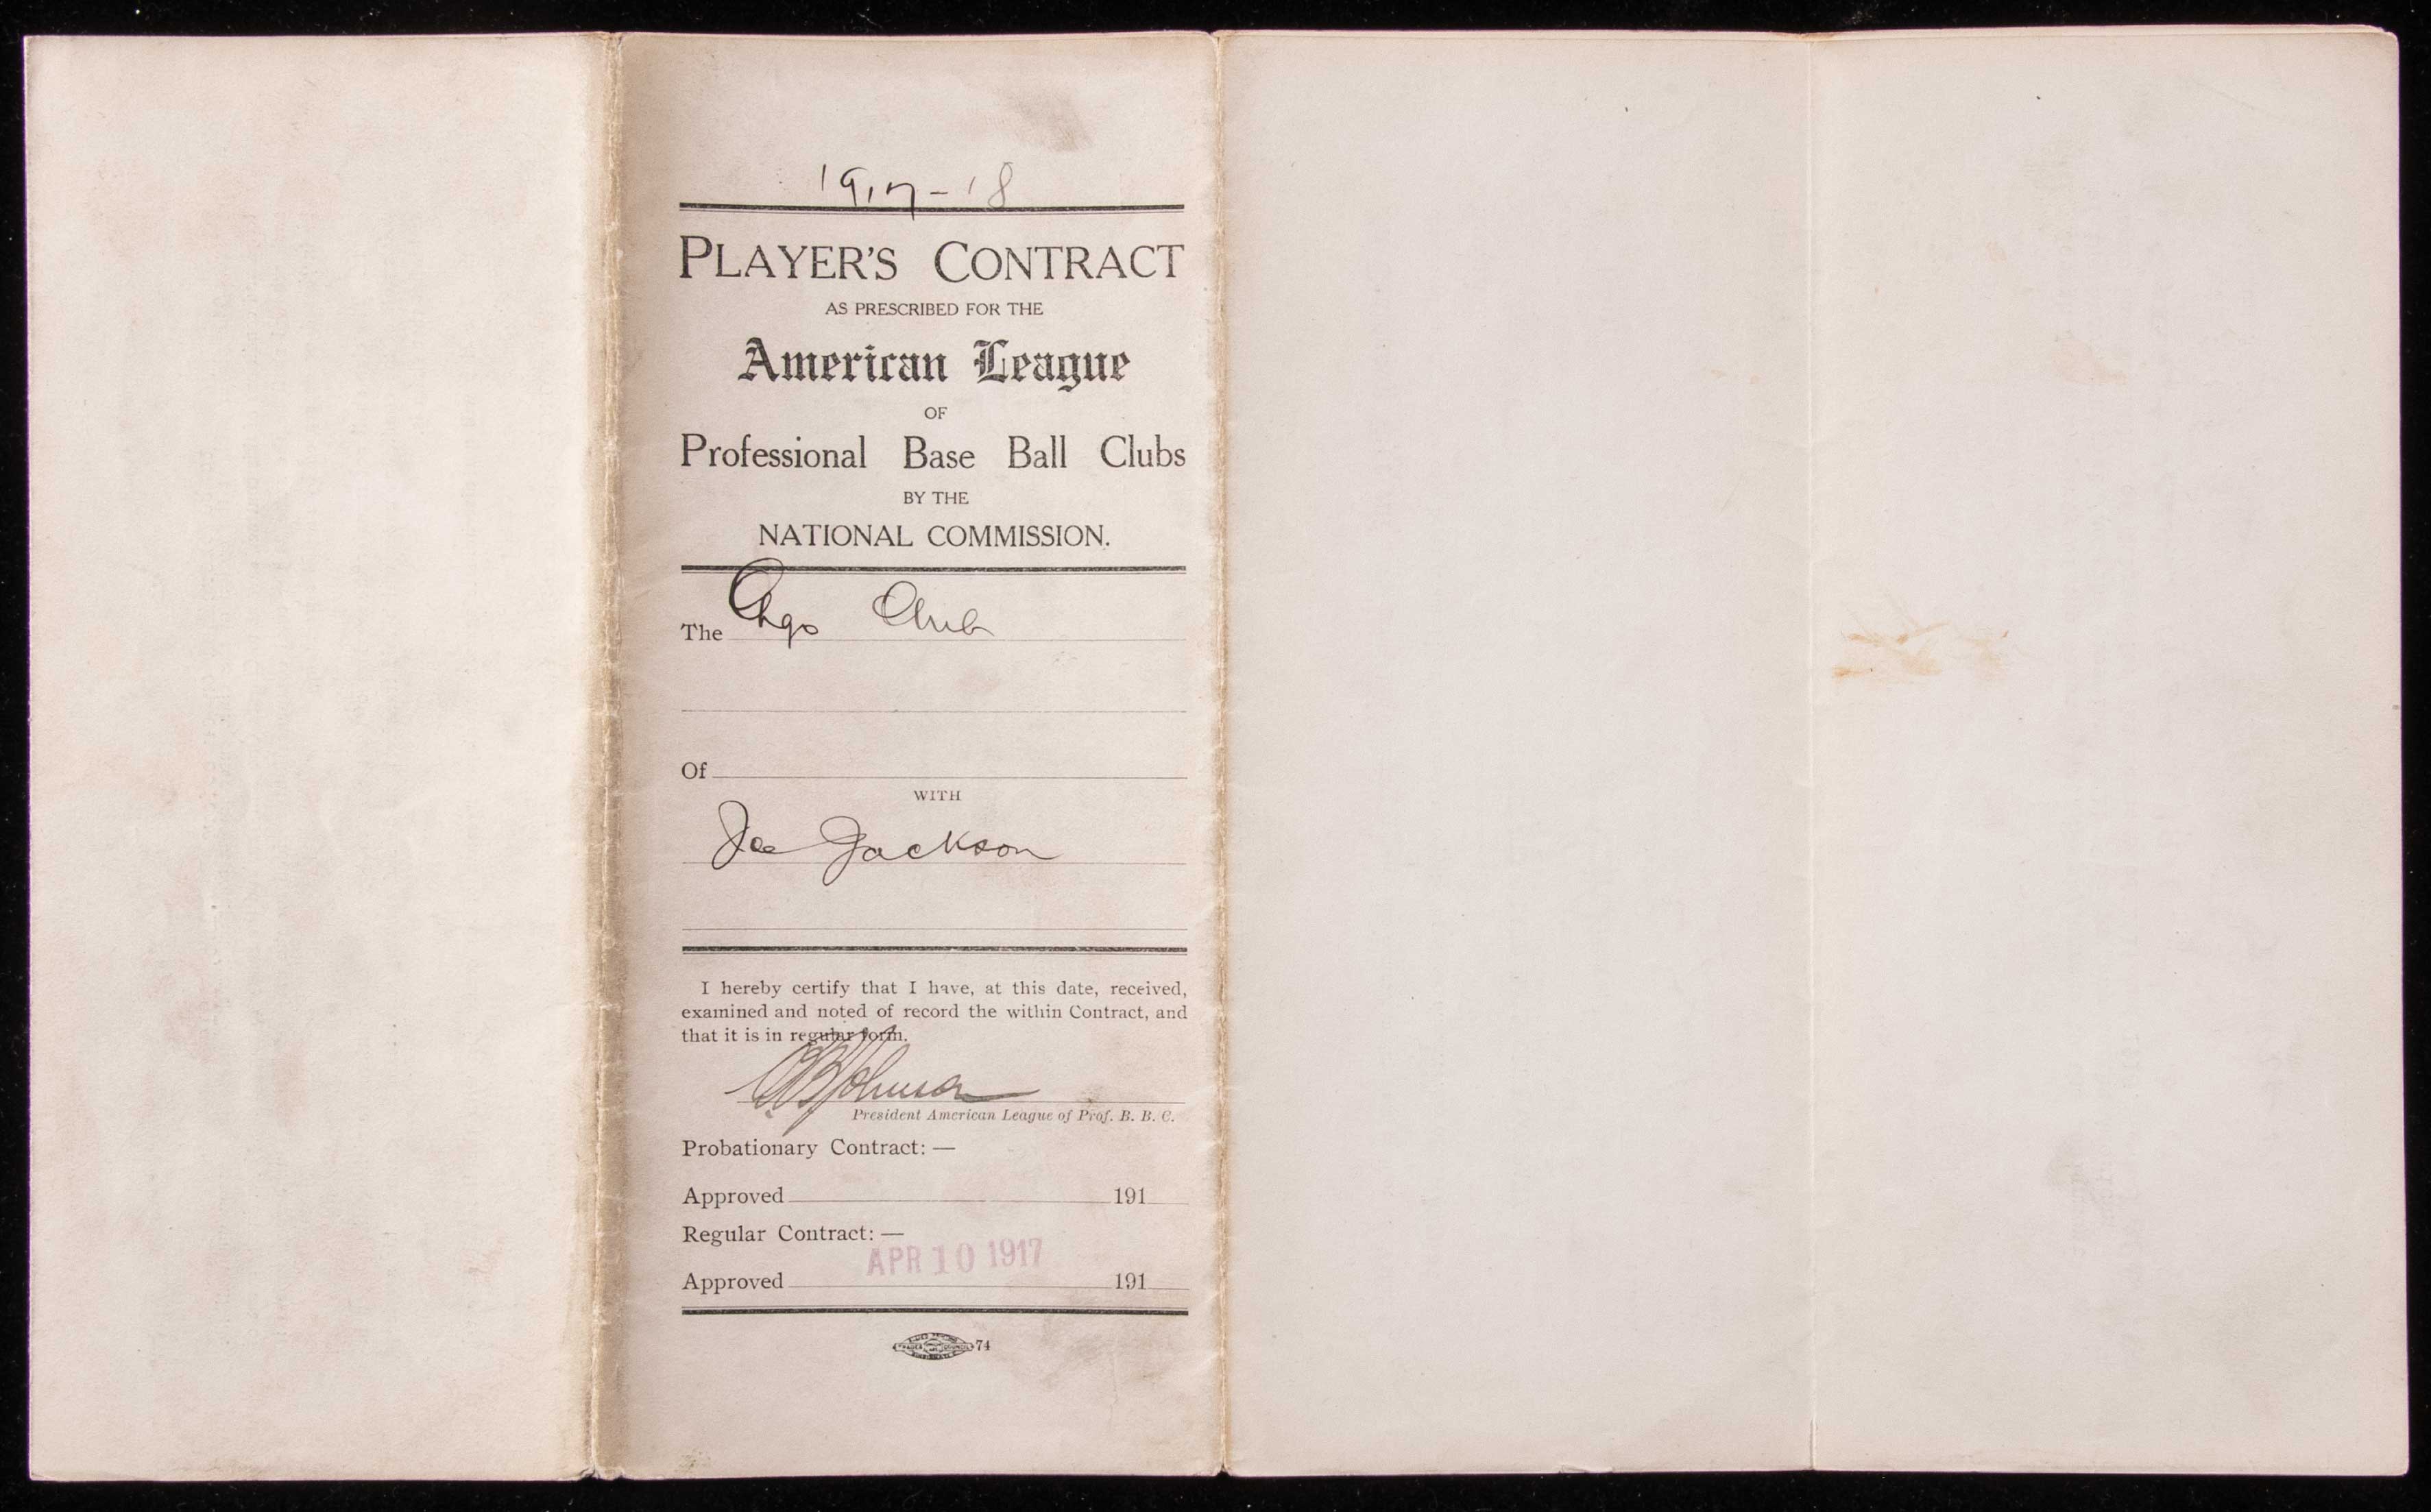 1917-18
PLAYER'S CONTRACT
AS PRESCRIBED FOR THE
American League
OF
Professional Base Ball Clubs
BY THE
NATIONAL COMMISSION.
The Chgo Club
Of
WITH
Joe Jackson
I hereby certify that I have, at this date, received,
examined and noted of record the within Contract, and
that it is in regular form.
B B Johnson
President American League of Prof. B. B. C.
Probationary Contract: —
Approved 191
Regular Contract: —
APR 10 1917
Approved 191
74